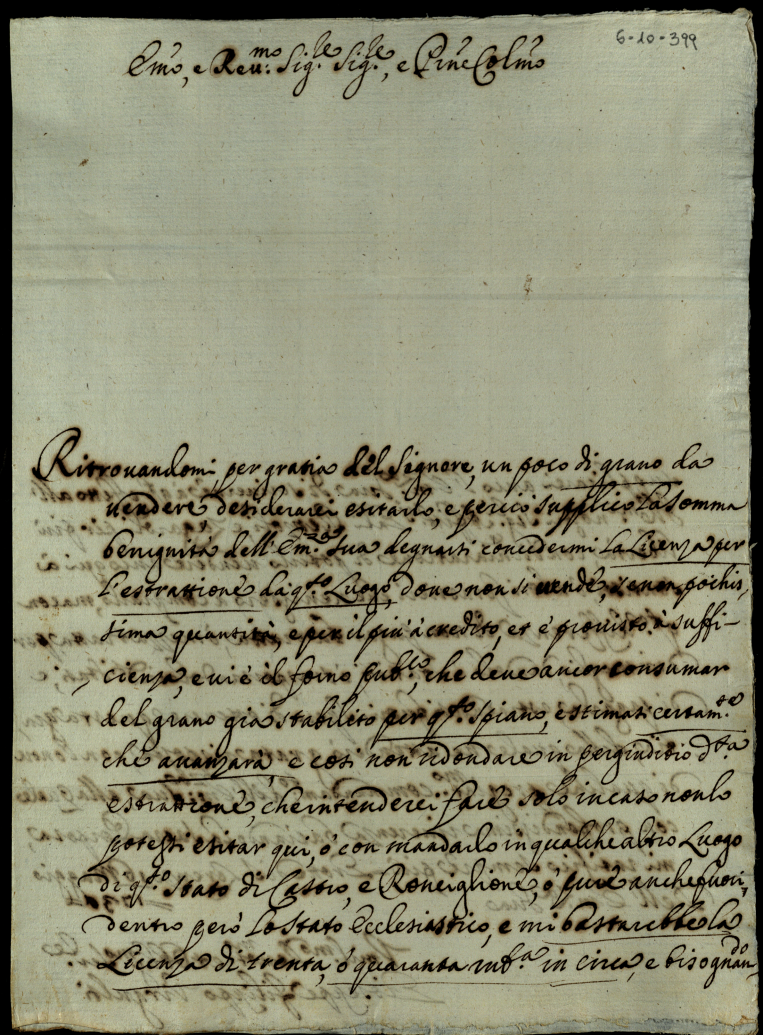 6-10-399
Em̃o, e Reu.mo Sig.re Sig.re, e Pr̃ne Colm̃o
Ritrouandomi, per gratia del Signore, un poco di grano da
uendere, desiderarei esitarlo, e perciò supplico la somma
benignità dell' Em.za sua degnarsi concedermi la Licenza per
l'estrattione da q.sto Luogo, doue non si uende, se non pochis,
sima quantità, e per il più à credito, et è prouisto à suffi-
cienza, e ui è il forno pub.co, che deue ancor consumar
del grano già stabilito per q.sto spiano, e stimasi certam.te
che auanzarà, e così non ridondare in pergiuditio d.ta
estrattione, che intenderei fare solo in caso non lo
potessi esitar qui, ò con mandarlo in qualche altro Luogo
di q.sto Stato di Castro, e Ronciglione, ò pure anche fuori,
dentro però lo Stato Ecclesiastico, e mi bastarebbe la
Licenza di trenta, ò quaranta rub.a in circa, e bisognan,do